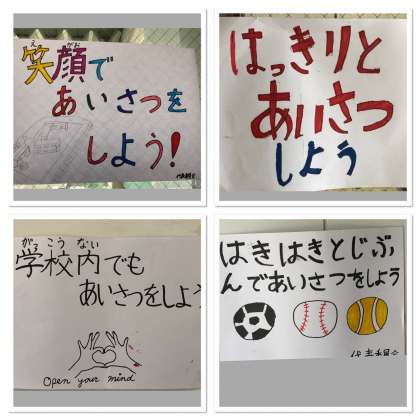 えがお
笑顔で
あいさつを
しよう!
はっきりと
あいさつ
しよう
がっこうない
学校内でも
あいさつをしよう
Open your mind
はきはきとじぶ
んであいさつをしよう
代表委員会